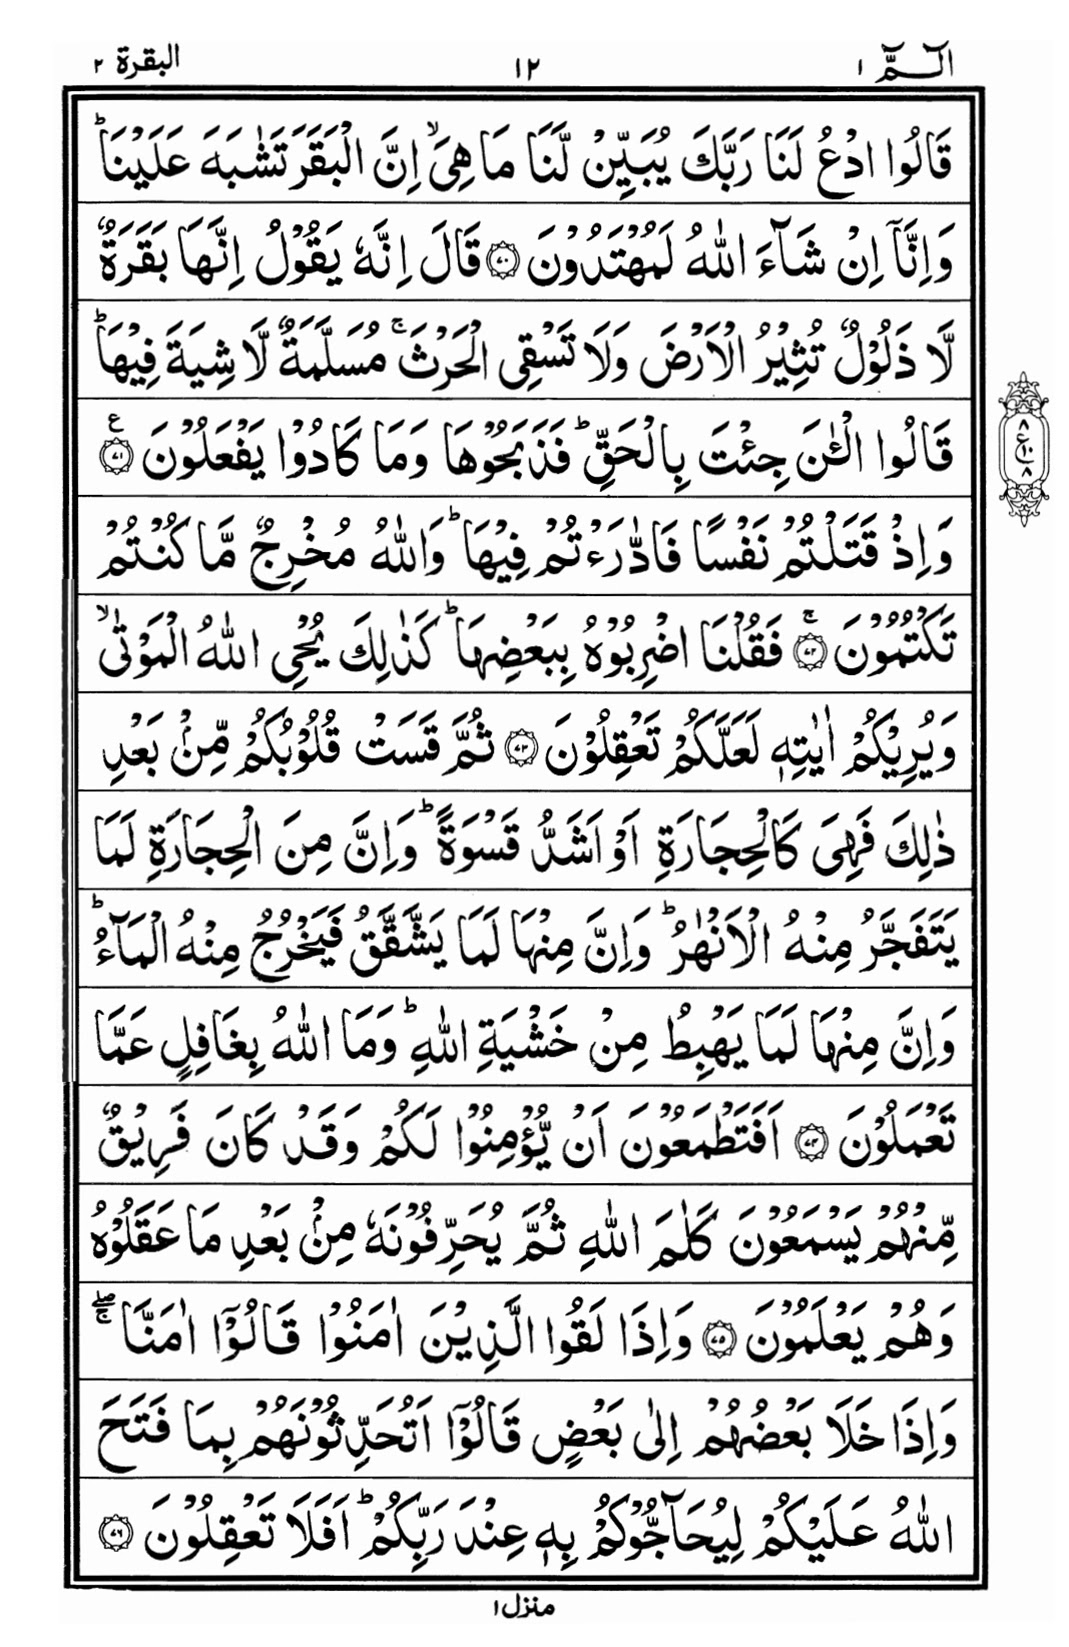 الٓـمّٓ ١ ١٢ البقرة ٢
قَالُوا ادْعُ لَنَا رَبَّكَ يُبَيِّنْ لَّنَا مَا هِىَ ۙ اِنَّ الْبَقَرَ تَشٰبَهَ عَلَيْنَا ؕ
وَاِنَّآ اِنْ شَآءَ اللّٰهُ لَمُهْتَدُوْنَ ﴿۷۰﴾ قَالَ اِنَّهٗ يَقُوْلُ اِنَّهَا بَقَرَةٌ
لَّا ذَلُوْلٌ تُثِيْرُ الْاَرْضَ وَلَا تَسْقِى الْحَرْثَ ۚ مُسَلَّمَةٌ لَّا شِيَةَ فِيْهَا ؕ
قَالُوا الْـٰٔنَ جِئْتَ بِالْحَقِّ ؕ فَذَبَحُوْهَا وَمَا كَادُوْا يَفْعَلُوْنَ ﴿۷۱﴾ ع
٨ ع ١٠ ٨
وَاِذْ قَتَلْتُمْ نَفْسًا فَادّٰرَءْتُمْ فِيْهَا ؕ وَاللّٰهُ مُخْرِجٌ مَّا كُنْتُمْ
تَكْتُمُوْنَ ﴿۷۲﴾ ۚ فَقُلْنَا اضْرِبُوْهُ بِبَعْضِهَا ؕ كَذٰلِكَ يُحْىِ اللّٰهُ الْمَوْتٰى ۙ
وَيُرِيْكُمْ اٰيٰتِهٖ لَعَلَّكُمْ تَعْقِلُوْنَ ﴿۷۳﴾ ثُمَّ قَسَتْ قُلُوْبُكُمْ مِّنْۢ بَعْدِ
ذٰلِكَ فَهِىَ كَالْحِجَارَةِ اَوْ اَشَدُّ قَسْوَةً ؕ وَاِنَّ مِنَ الْحِجَارَةِ لَمَا
يَتَفَجَّرُ مِنْهُ الْاَنْهٰرُ ؕ وَاِنَّ مِنْهَا لَمَا يَشَّقَّقُ فَيَخْرُجُ مِنْهُ الْمَآءُ ؕ
وَاِنَّ مِنْهَا لَمَا يَهْبِطُ مِنْ خَشْيَةِ اللّٰهِ ؕ وَمَا اللّٰهُ بِغَافِلٍ عَمَّا
تَعْمَلُوْنَ ﴿۷۴﴾ اَفَتَطْمَعُوْنَ اَنْ يُّؤْمِنُوْا لَكُمْ وَقَدْ كَانَ فَرِيْقٌ
مِّنْهُمْ يَسْمَعُوْنَ كَلٰمَ اللّٰهِ ثُمَّ يُحَرِّفُوْنَهٗ مِنْۢ بَعْدِ مَا عَقَلُوْهُ
وَهُمْ يَعْلَمُوْنَ ﴿۷۵﴾ وَاِذَا لَقُوا الَّذِيْنَ اٰمَنُوْا قَالُوْٓا اٰمَنَّا ۖۚ
وَاِذَا خَلَا بَعْضُهُمْ اِلٰى بَعْضٍ قَالُوْٓا اَتُحَدِّثُوْنَهُمْ بِمَا فَتَحَ
اللّٰهُ عَلَيْكُمْ لِيُحَآجُّوْكُمْ بِهٖ عِنْدَ رَبِّكُمْ ؕ اَفَلَا تَعْقِلُوْنَ ﴿۷۶﴾
منزل ١